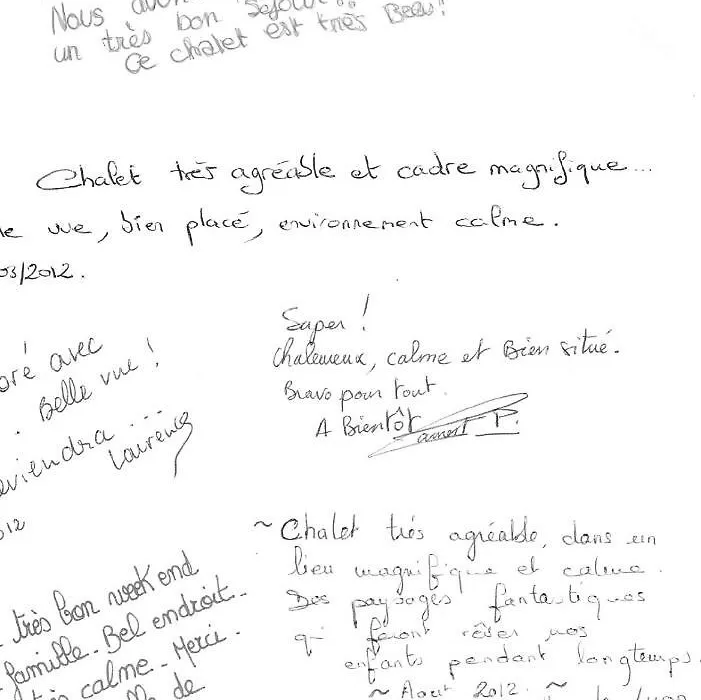 Nous
un très bon séjour
Ce chalet est très Beau!
Chalet très agréable et cadre magnifique...
vue, bien placé, environnement calme.
03/2012.
avec
Belle vue!
Super!
chaleureux, calme et Bien situé.
Bravo pour tout.
A Bientôt
P.
eviendra...
Laurence
012
~ Chalet très agréable, dans un
lieu magnifique et calme.
Des paysages fantastiques
qui feront rêver nos
enfants pendant longtemps.
~ Aout 2012. ~
très bon week end
famille. Bel endroit.
calme. Merci.
de